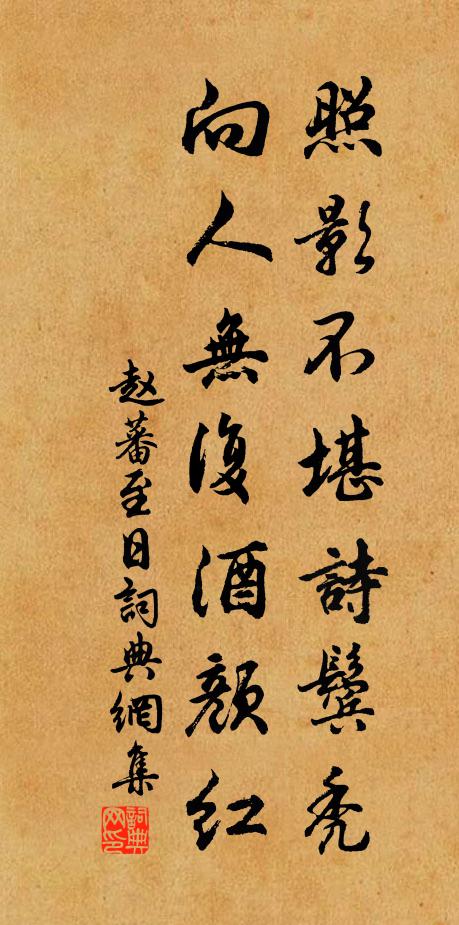 照影不堪詩鬢禿
向人無復酒顏紅
赵蕃至日詞典網集
詞典网印